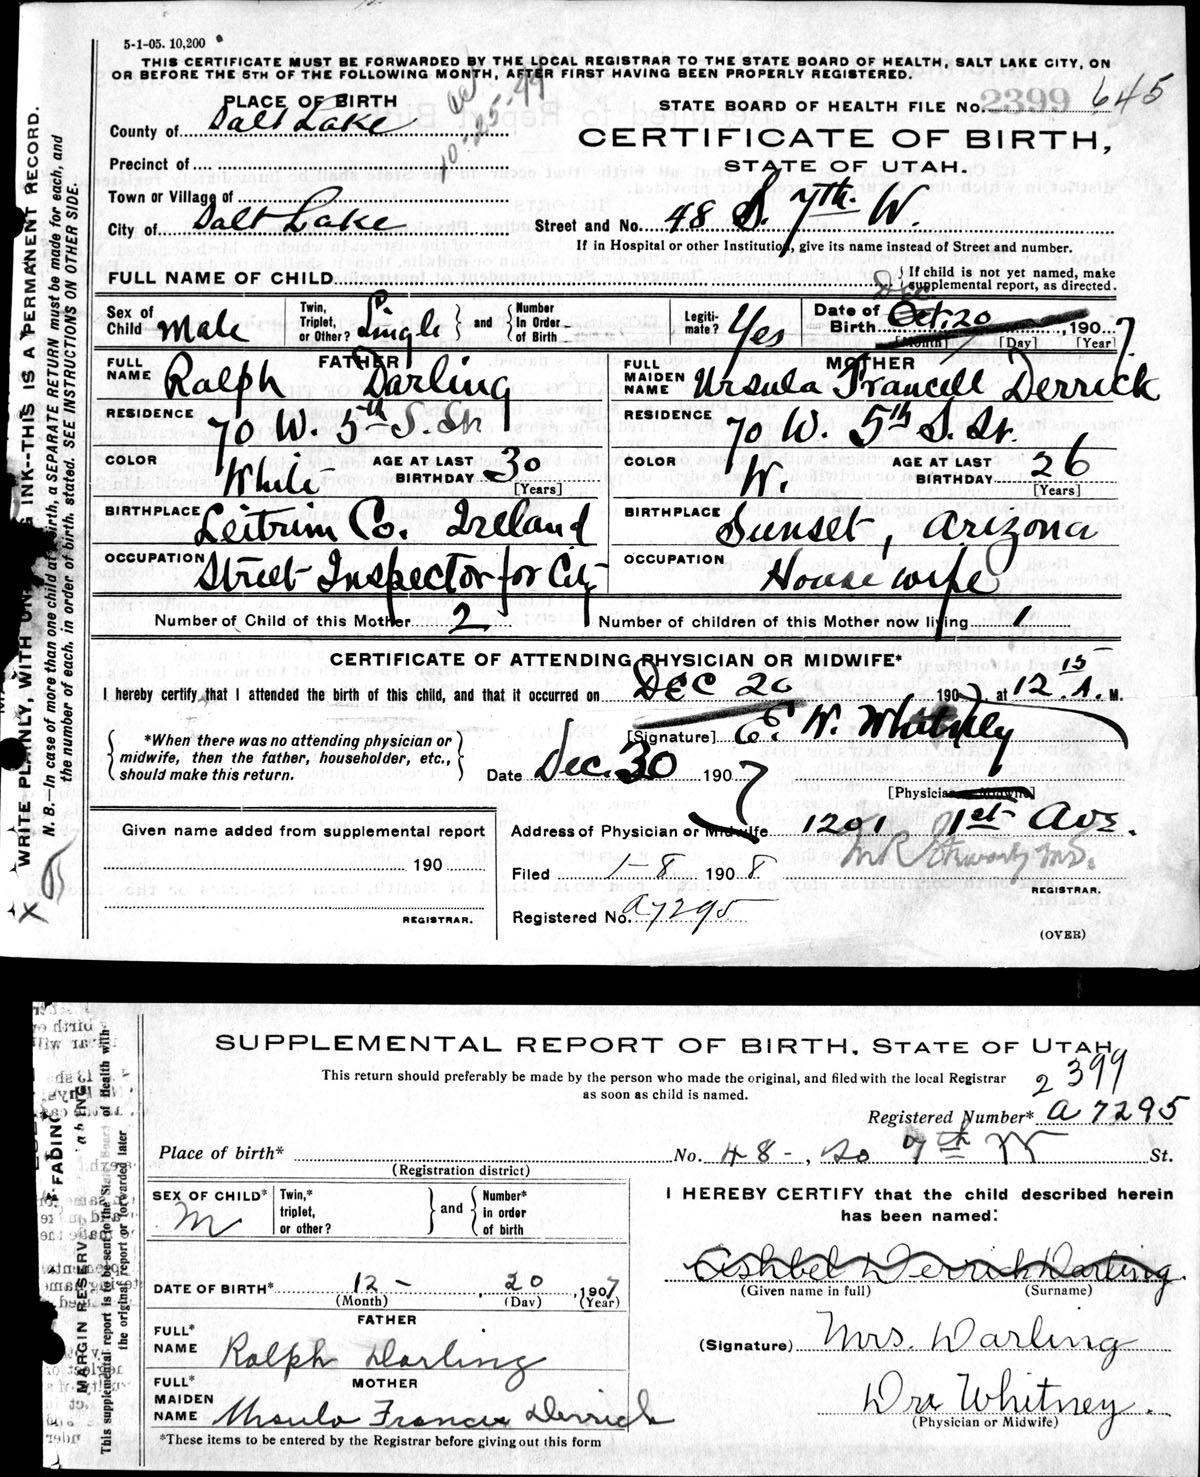 5-1-05. 10,200
THIS CERTIFICATE MUST BE FORWARDED BY THE LOCAL REGISTRAR TO THE STATE BOARD OF HEALTH, SALT LAKE CITY, ON
OR BEFORE THE 5TH OF THE FOLLOWING MONTH, AFTER FIRST HAVING BEEN PROPERLY REGISTERED.
PLACE OF BIRTH
County of Salt Lake
Precinct of
Town or Village of
City of Salt Lake
10-25-44
STATE BOARD OF HEALTH FILE NO. 2399 645
CERTIFICATE OF BIRTH,
STATE OF UTAH.
Street and No. 48 S. 7th. W.
If in Hospital or other Institution, give its name instead of Street and number.
FULL NAME OF CHILD
{ If child is not yet named, make
supplemental report, as directed.
Sex of Child Male
Twin, Triplet, or Other? Single } and { Number In Order of Birth
Legitimate? Yes
Date of Birth Dec. Oct. 20, 1907.
[Month] [Day] [Year]
FATHER
FULL NAME Ralph Darling
RESIDENCE 70 W. 5th S. St.
COLOR White AGE AT LAST BIRTHDAY 30 [Years]
BIRTHPLACE Leitrim Co. Ireland
OCCUPATION Street Inspector for City
MOTHER
FULL MAIDEN NAME Ursula Francell Derrick
RESIDENCE 70 W. 5th S. St.
COLOR W. AGE AT LAST BIRTHDAY 26 [Years]
BIRTHPLACE Sunset, Arizona
OCCUPATION House wife
Number of Child of this Mother 2 Number of children of this Mother now living 1
CERTIFICATE OF ATTENDING PHYSICIAN OR MIDWIFE*
I hereby certify that I attended the birth of this child, and that it occurred on Dec 20, 1907, at 12 15 A. M.
{ *When there was no attending physician or
midwife, then the father, householder, etc.,
should make this return. }
[Signature] E. W. Whitney
Date Dec. 30 1907
[Physician or Midwife]
Address of Physician or Midwife 1201 1st Ave.
Given name added from supplemental report
190
REGISTRAR.
Filed 1-8. 1908.
REGISTRAR.
Registered No. a7295
(OVER)
WRITE PLAINLY, WITH INK--THIS IS A PERMANENT RECORD.
N. B.—In case of more than one child at birth, a SEPARATE RETURN must be made for each, and
the number of each, in order of birth, stated. SEE INSTRUCTIONS ON OTHER SIDE.
SUPPLEMENTAL REPORT OF BIRTH, STATE OF UTAH
This return should preferably be made by the person who made the original, and filed with the local Registrar
as soon as child is named.
2399
Registered Number* a7295
Place of birth* No. 48-, So 7th W St.
(Registration district)
SEX OF CHILD* M
Twin,* triplet, or other? } and { Number* in order of birth
DATE OF BIRTH* 12- 20, 1907
(Month) (Day) (Year)
FATHER
FULL* NAME Ralph Darling
MOTHER
FULL* MAIDEN NAME Ursula Francis Derrick
*These items to be entered by the Registrar before giving out this form
I HEREBY CERTIFY that the child described herein
has been named:
Ashbel Derrick Darling.
(Given name in full) (Surname)
(Signature) Mrs. Darling
Dr. Whitney.
(Physician or Midwife)
MARGIN RESERV
This supplemental report is to be sent to the State Board of Health with
the original report or forwarded later